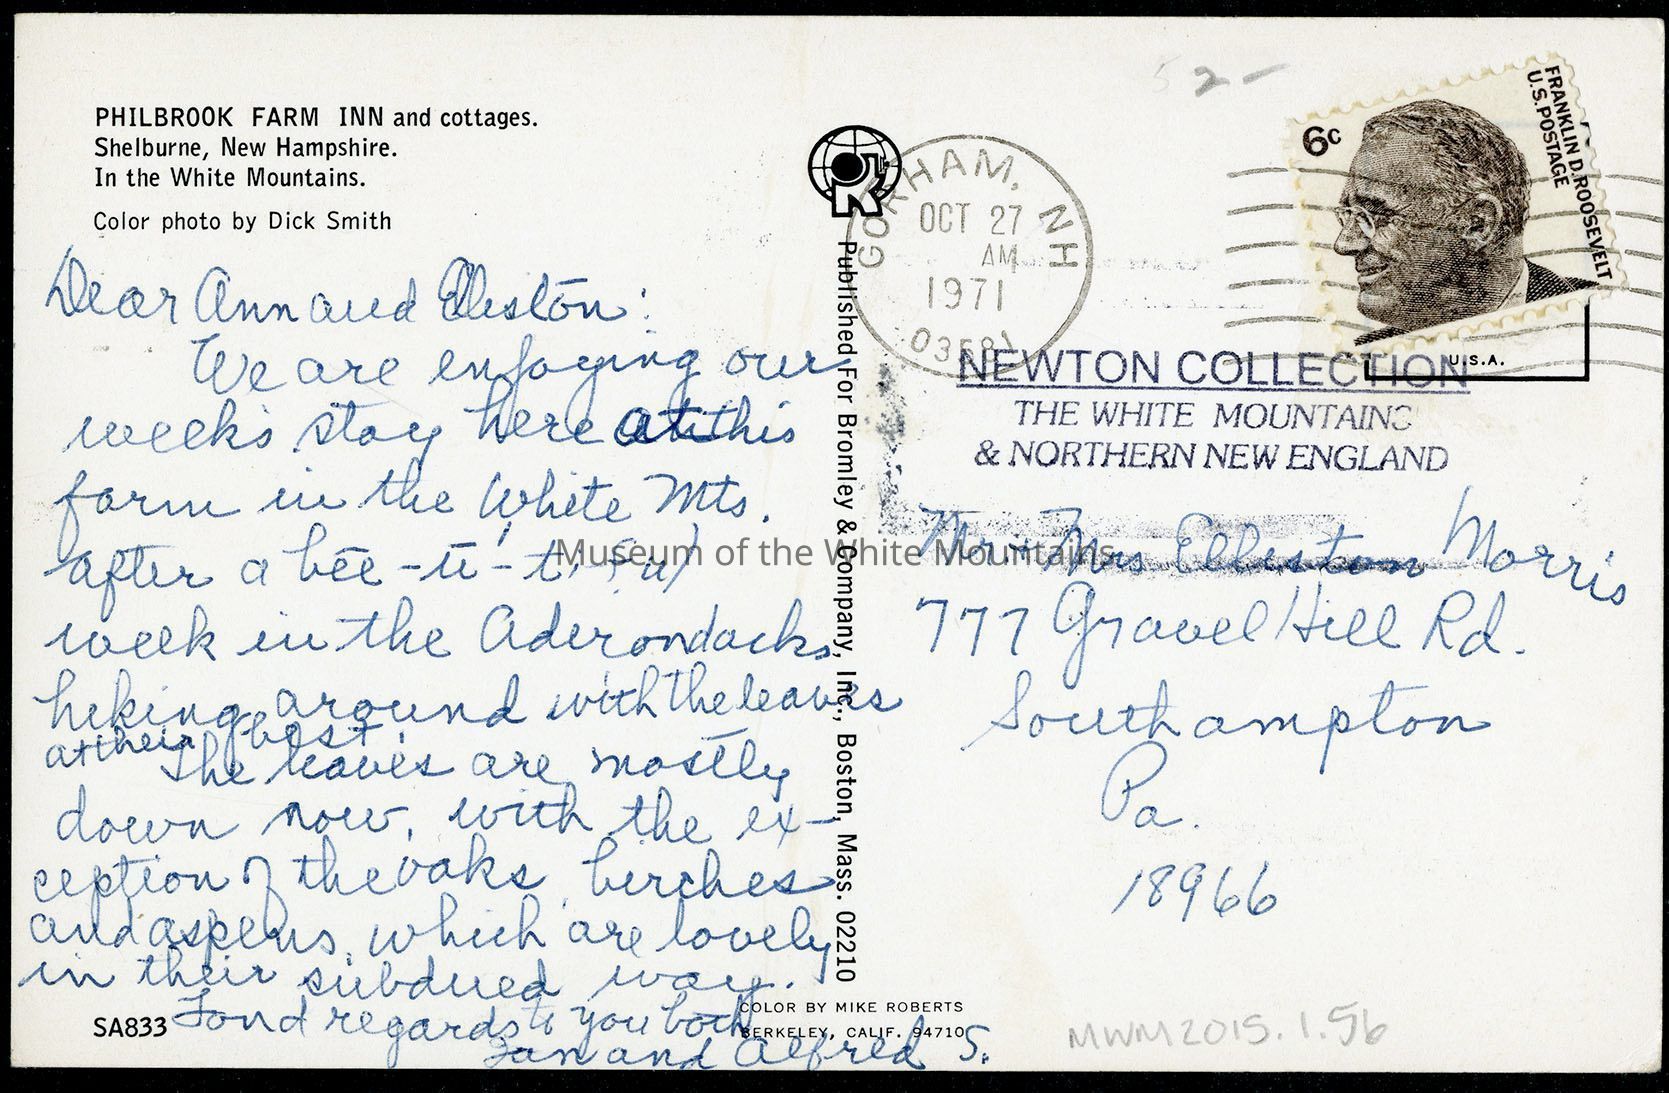 PHILBROOK FARM INN and cottages.
Shelburne, New Hampshire.
In the White Mountains.
Color photo by Dick Smith
Dear Ann and Elliston:
We are enjoying our
weeks stay here at this
farm in the White Mts.
after a bee-ū-ti-ful
week in the Aderondacks
hiking around with the leaves
at their best.
The leaves are mostly
down now, with the ex-
ception of the oaks, birches
and aspens, which are lovely
in their subdued way.
Fond regards to you both
Jan and Alfred S.
SA833
Published For Bromley & Company, Inc., Boston, Mass. 02210
COLOR BY MIKE ROBERTS
BERKELEY, CALIF. 94710
52-
GORHAM, NH
OCT 27
AM
1971
03581
6c
FRANKLIN D. ROOSEVELT
U.S. POSTAGE
U.S.A.
NEWTON COLLECTION
THE WHITE MOUNTAINS
& NORTHERN NEW ENGLAND
Mr + Mrs Elliston Morris
777 Gravel Hill Rd.
Southampton
Pa.
18966
MWM2015.1.56
Museum of the White Mountains